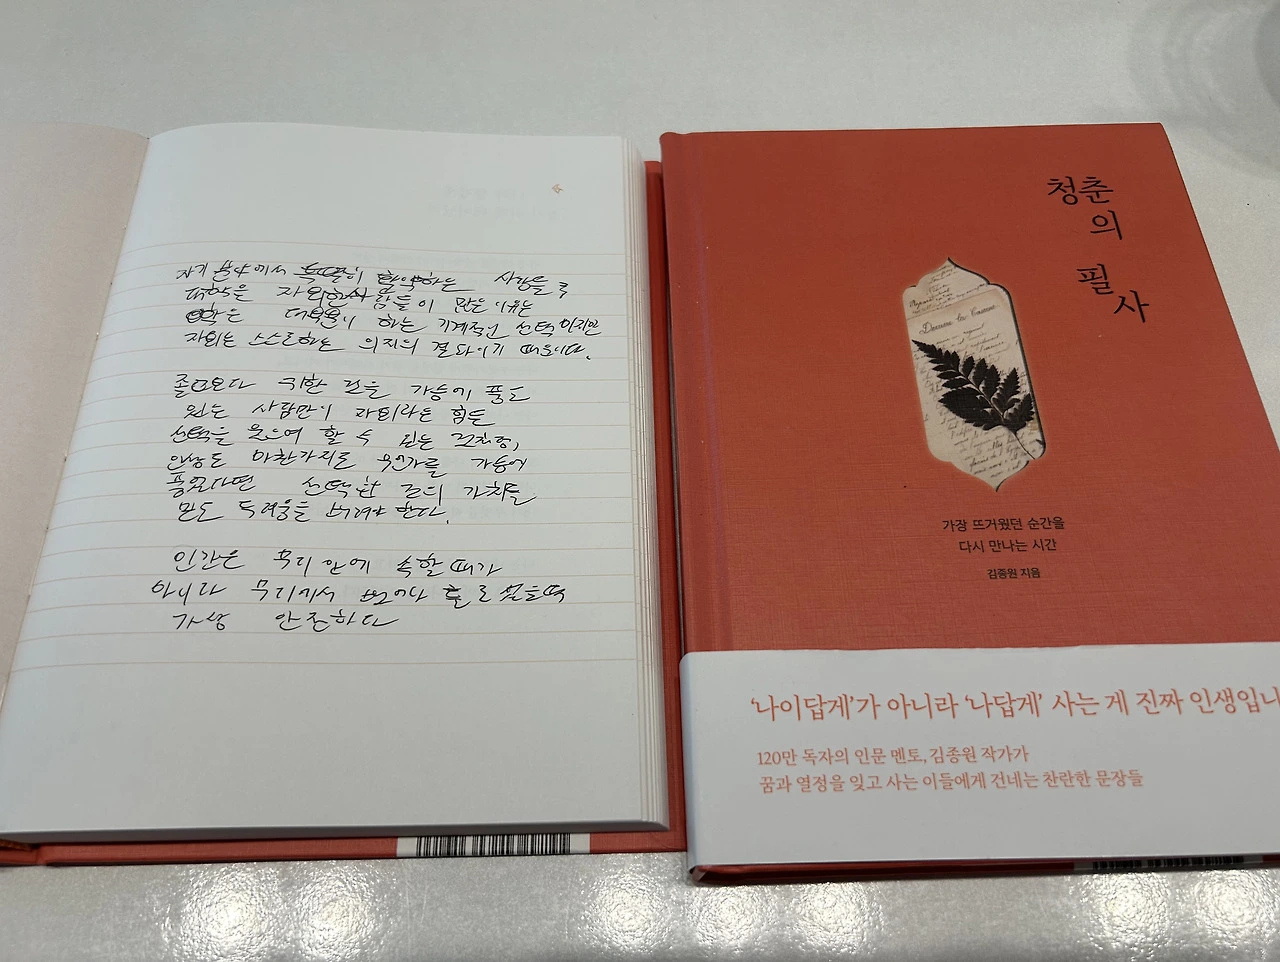 자기 분야에서 특별히 활약하는 사람들 중
대학을 자퇴한 사람들이 많은 이유는
대학은 대부분이 하는 기계적인 선택이지만
자퇴는 스스로하는 의지의 결과이기 때문이다.
졸업보다 귀한 것을 가슴에 품고
있는 사람만이 자퇴라는 힘든
선택을 웃으며 할 수 있는 것처럼,
인생도 마찬가지로 무언가를 가슴에
품었다면 선택한 것의 가치를
믿고 두려움을 버려야 한다.
인간은 무리 안에 속할 때가
아니라 무리에서 벗어나 홀로 섰을 때
가장 안전하다
청춘
의
필
사
가장 뜨거웠던 순간을
다시 만나는 시간
김종원 지음
'나이답게'가 아니라 '나답게' 사는 게 진짜 인생입니
120만 독자의 인문 멘토, 김종원 작가가
꿈과 열정을 잊고 사는 이들에게 건네는 찬란한 문장들